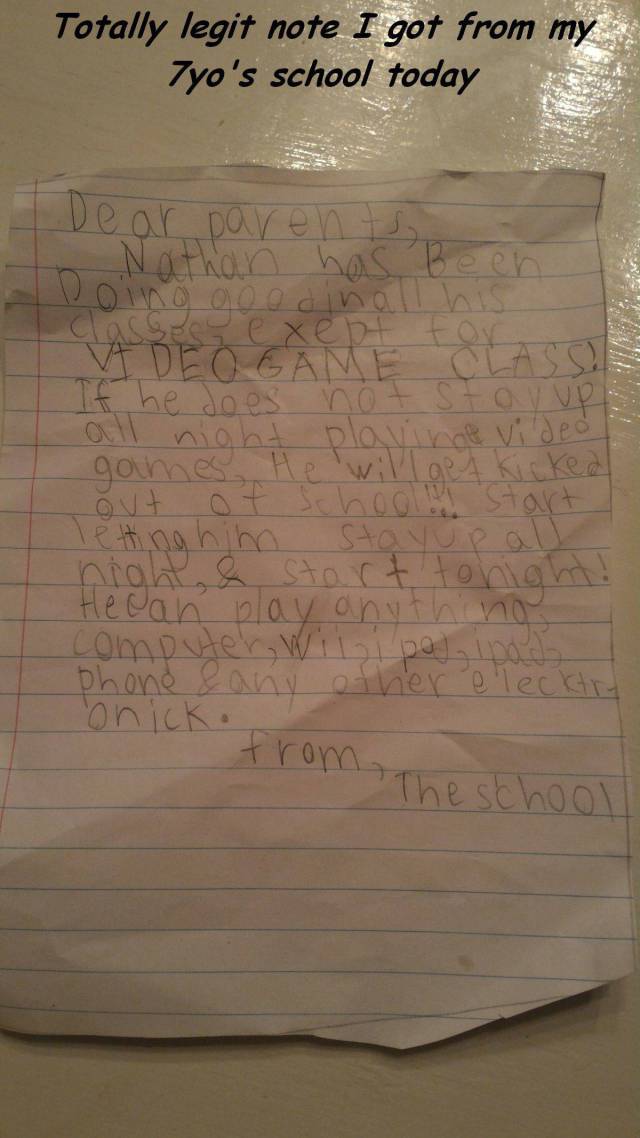 Totally legit note I got from my
7yo's school today
Dear parents,
Nathan has Been
Doing good in all his
classes, exept for
VIDEO GAME CLASS!
If he does not stay up
all night playing video
games, He will get kicked
out of school!!! Start
letting him stay up all
night, & start tonight!
He can play anything,
computer, Wii, ipod, ipad,
phone & any other elecktr-
onick.
from,
The school